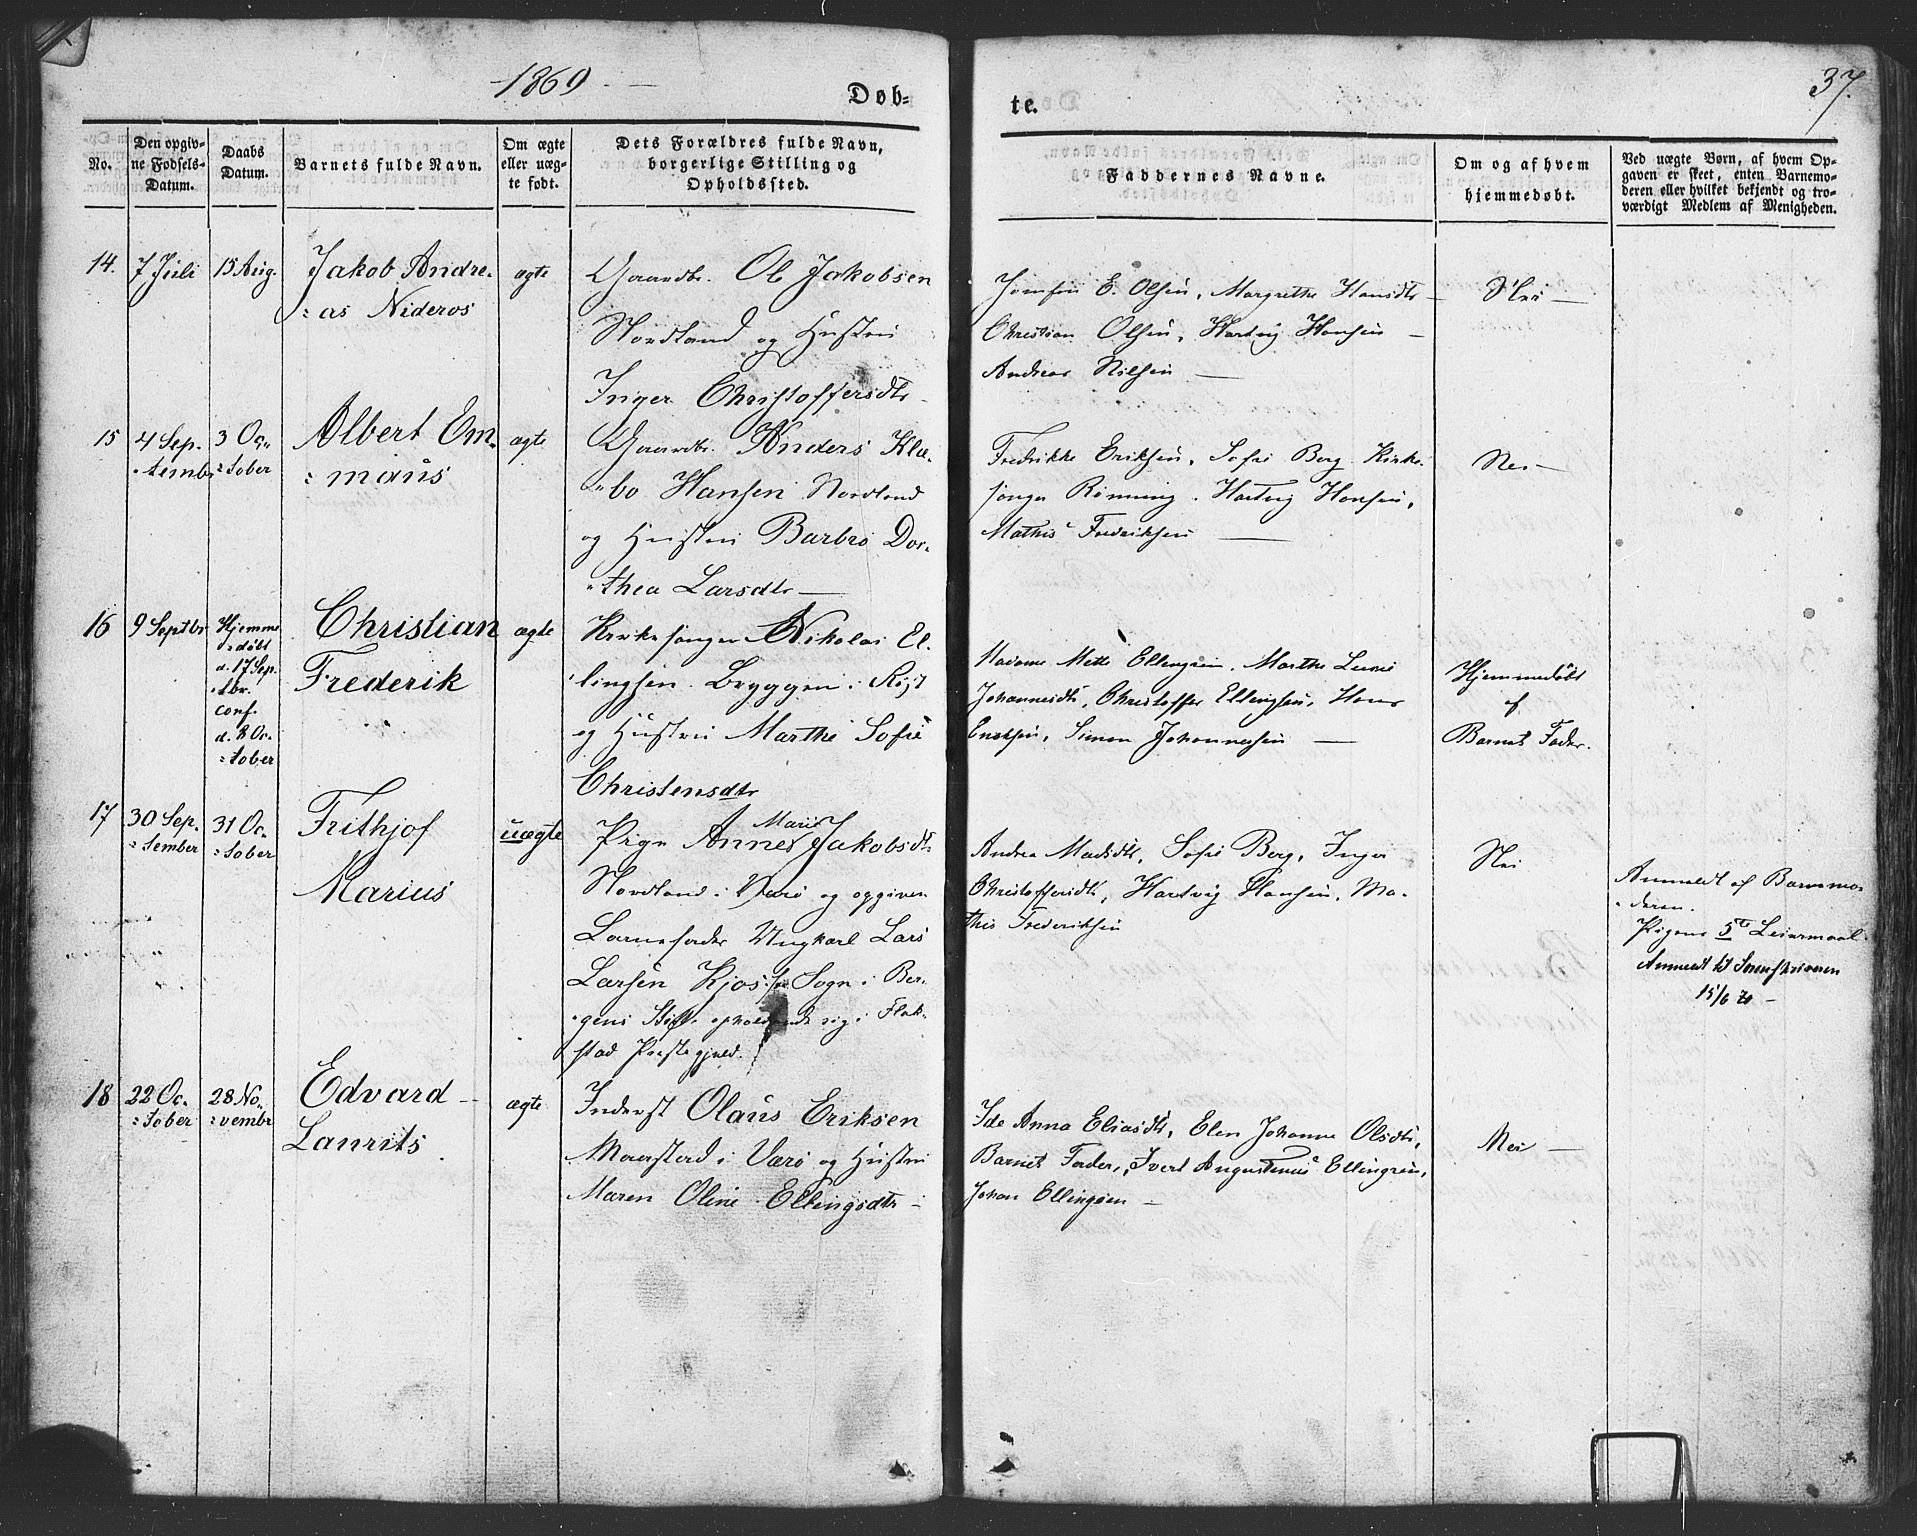 1869. —
Døb-
te.
37.
No.
Den opgiv-
ne Fødsels-
Datum.
Daabs
Datum.
Barnets fulde Navn.
Om ægte
eller uæg-
te født.
Dets Forældres fulde Navn,
borgerlige Stilling og
Opholdssted.
Faddernes Navne.
Om og af hvem
hjemmedøbt.
Ved uægte Børn, af hvem Op-
gaven er skeet, enten Barnemo-
deren eller hvilket bekjendt og tro-
værdigt Medlem af Menigheden.
14.
7 Juli
15 Aug.
Jakob Andre-
:as Nideros
ægte
Gaardbr. Ole Jakobsen
Nordland og Hustru
Inger Christoffersdtr
E. Olsen, Margrethe Hansdtr
Christian Olsen, Hartvig Hansen
Andreas Nilsen —
Nei —
15
4 Sep-
:tembr
3 Oc-
:tober
Albert Em-
:maus
ægte
Gaardbr. Anders Klæ-
:bo Hansen Nordland
og Hustru Barbro Dor-
:thea Larsdtr —
Fredrikke Eriksen, Sofie Berg. Kirke-
sanger Rønning. Hartvig Hansen,
Mathis Fredriksen —
Nei —
16
9 Septbr
Hjemme
:døbt
d. 17 Sep-
:tbr.
conf.
d. 8 Oc-
:tober
Christian
Frederik
ægte
Kirkesanger Nikolai El-
:lingsen. Bryggen i Røst
og Hustru Marthe Sofie
Christensdtr
Madame Mette Ellingsen. Marthe
Johannesdtr, Christoffer Ellingsen, Hans
Enoksen, Simon Johannesen —
Hjemmedøbt
af
Barnets Fader.
17
30 Sep-
:tember
31 Oc-
:tober
Frithjof
Marius
uægte
Pige Anne Marie Jakobsdtr
Nordland i Værø og opgiven
Barnefader Ungkarl Lars
Larsen Kjos fra Sogn i Ber-
:gens Stift opholdende sig i Flak-
stad Præstegjeld.
Andrea Madsdtr, Sofie Berg, Inger
Christoffersdtr, Hartvig Hansen, Ma-
this Frederiksen
Nei
Anmeldt af Barnemo-
:deren.
Pigens 5te Leiermaal
Anmeldt til Sorenskriveren
15/6 70 —
18
22 Oc-
:tober
28 No-
:vembr
Edvard —
Laurits
ægte
Inderst Olaus Eriksen
Maastad i Værø og Hustru
Maren Oline Ellingsdtr —
Ida Anna Eliasdtr, Elen Johanna Olsdtr,
Barnets Fader, Ivert Augustinus Ellingsen,
Johan Ellingsen —
Nei —